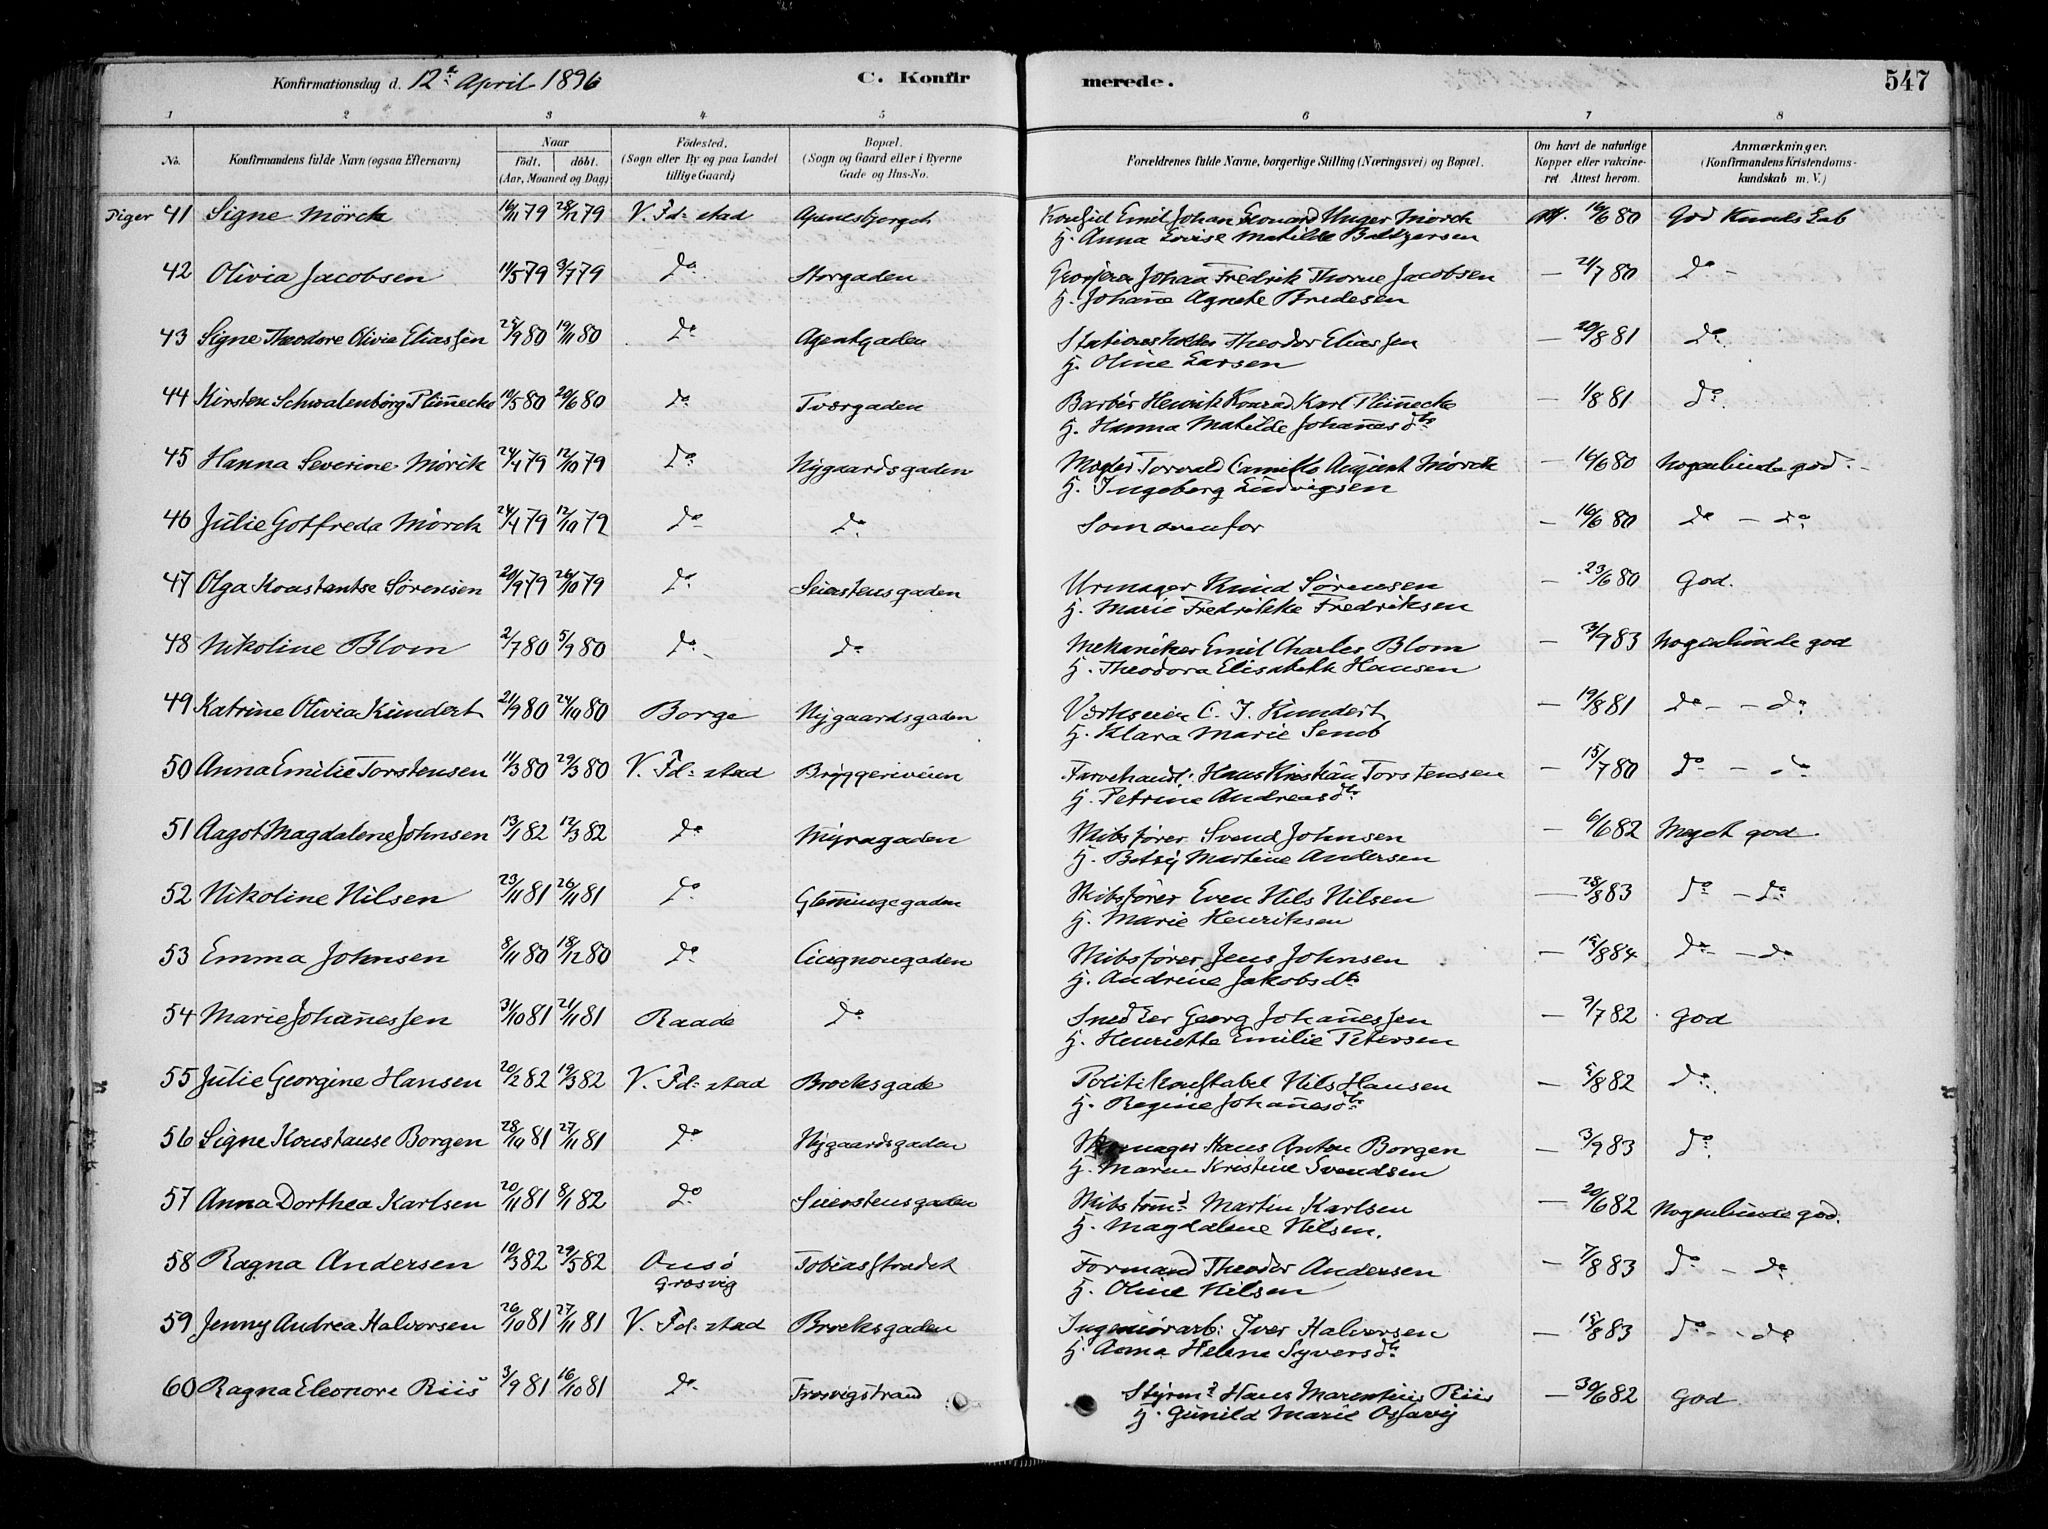 Konfirmationsdag d. 12te April 1896 C. Konfirmerede. 547
1 2 3 4 5 6 7 8
No. Konfirmandens fulde Navn (ogsaa Efternavn) Naar födt, döbt. (Aar, Maaned og Dag) Födested. (Sogn eller By og paa Landet tillige Gaard) Bopæl. (Sogn og Gaard eller i Byerne Gade og Hus-No. Forældrenes fulde Navne, borgerlige Stilling (Næringsvei) og Bopæl. Om havt de naturlige Kopper eller vakcineret. Attest herom. Anmærkninger. (Konfirmandens Kristendomskundskab m. V.)
Piger 41 Signe Mörck 16/11 79 28/12 79 V. Fd:stad Emil Johan Edouard Unger Mörck 16/6 80 God Kunds Lab
H. Anna Lovise Matilde Baltzersen
42 Olivia Jacobsen 11/5 79 9/7 79 do Storgaden Johan Fredrik Thorne Jacobsen — 21/7 80 do -
H. Johanne Agnete Bredesen
43 Signe Theodore Olivie Eliassen 25/9 80 19/11 80 do Agentgaden Stationsholder Theodor Eliassen — 20/8 81 do
H. Oline Larsen
44 Kirsten Schwalenborg Plünnecke 10/5 80 20/6 80 do Tværgaden Barbér Henrik Konrad Karl Plünnecke — 1/8 81 do
H. Hanna Matilde Johannesdtr
45 Hanna Severine Mörck 24/4 79 12/10 79 do Nygaardsgaden Mægler Torvald Camillo Mörck — 16/6 80 Nogenlunde god.
H. Ingeborg Ludvigsen
46 Julie Gotfreda Mörck 24/4 79 12/10 79 do do Som ovenfor — 16/6 80 do — do
47 Olga Konstantse Sörensen 20/9 79 26/10 79 do Seierstensgaden Urmager Knud Sörensen — 23/6 80 God.
H. Marie Fredrikke Fredriksen
48 Nikoline Blom 2/7 80 5/9 80 do do Mekaniker Emil Charles Blom — 3/9 83 Nogenlunde god
H. Theodora Elisabeth Hansen
49 Katrine Olivia Kundert 21/9 80 24/10 80 Borge Nygaardsgaden Værkseier C. J. Kundert — 19/8 81 do — do
H. Klara Marie Semb
50 Anna Emilie Torstensen 11/3 80 29/3 80 V. Fd:stad Bryggeriveien Farvehandl. Hans Kristian Torstensen — 15/7 80 do — do
H. Petrine Andreasdtr
51 Aagot Magdalene Johnsen 13/1 82 12/3 82 do Myragaden Skibsförer Svend Johnsen — 6/6 82 Meget god.
H. Betsy Martine Andersen
52 Nikoline Nilsen 23/11 81 26/11 81 do Glemmingegaden Skibsförer Even Nils Nilsen — 28/8 83 do — do
H. Marie Henriksen
53 Emma Johnsen 8/11 80 18/12 80 do Cicignongaden Skibsförer Jens Johnsen — 15/8 84 do — do
H. Andrine Jakobsdtr
54 Marie Johannessen 31/10 81 21/11 81 Raade do Snedker Georg Johannessen — 9/7 82 God
H. Henriette Emilie Petersen
55 Julie Georgine Hansen 20/2 82 19/3 82 V. Fd:stad Brocksgade Politikonstabel Nils Hansen — 5/8 82 do
H. Regine Johannesdtr
56 Signe Konstanse Borgen 28/10 81 27/11 81 do Nygaardsgaden Skomager Hans Anton Borgen — 3/9 83 do
H. Maren Kristine Svendsen
57 Anna Dorthea Karlsen 20/11 81 8/1 82 do Seierstensgaden Skibstömd Martin Karlsen — 20/6 82 Nogenlunde god.
H. Magdalene Nilsen.
58 Ragna Andersen 10/3 82 29/5 82 Onsö Tobiasstrædet Formand Theodor Andersen — 7/8 83 do — do
Græsvig H. Oline Nilsen
59 Jenny Andrea Halvorsen 26/10 81 27/11 81 V. Fd:stad Brocksgaden Ingeniörarb: Iver Halvorsen — 15/8 83 do — do
H. Anna Helene Syversdtr
60 Ragna Eleonore Riis 3/9 81 16/10 81 do Trosvigstrand Styrmd Hans Marentius Riis — 30/6 82 God
H. Gunild Marie